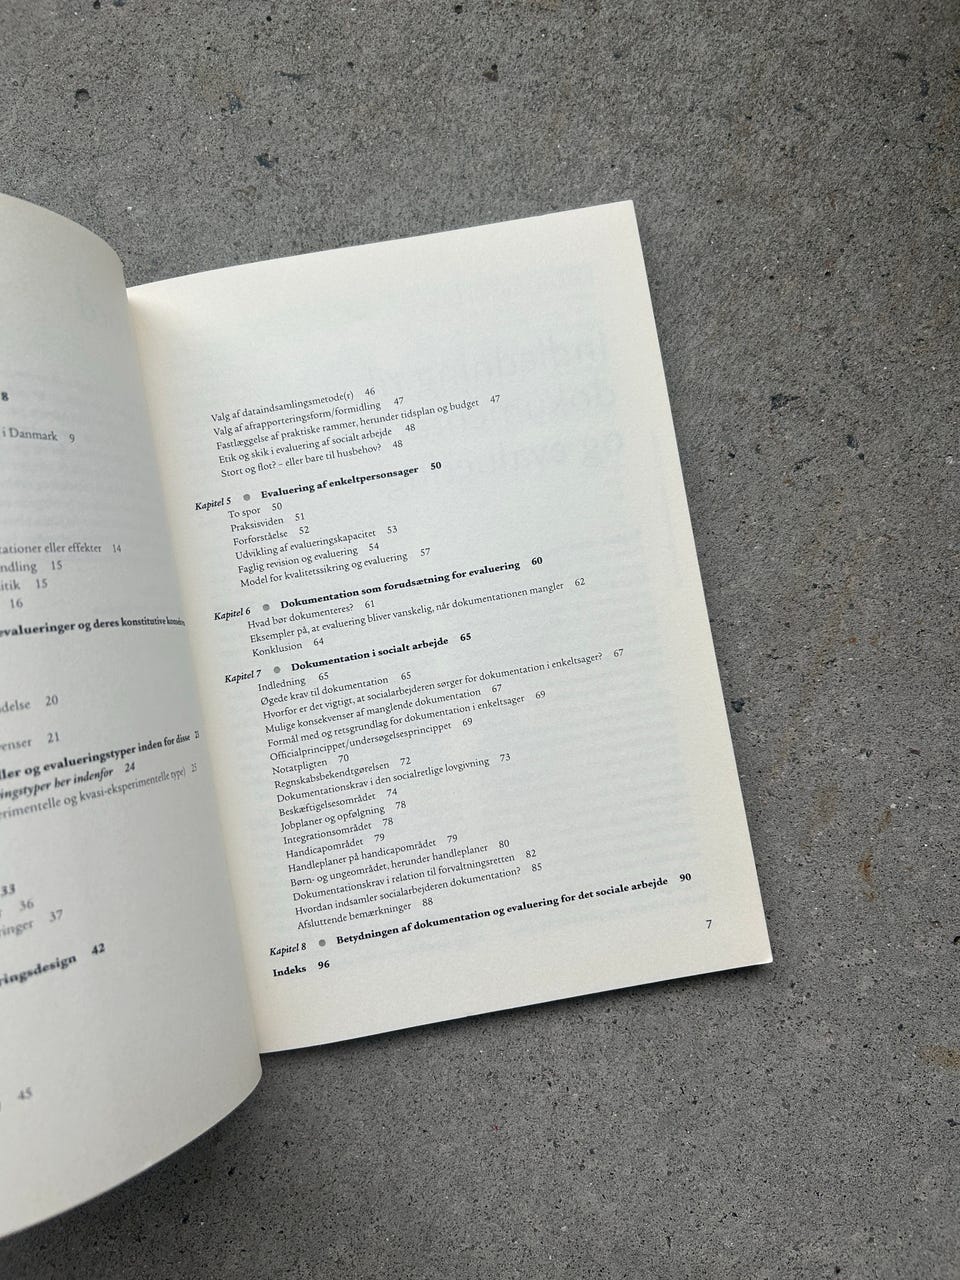 8
i Danmark 9
tationer eller effekter 14
ndling 15
itik 15
16
evalueringer og deres konstitutive
delse 20
enser 21
ller og evalueringstyper inden for disse 23
ringstyper her indenfor 24
erimentelle og kvasi-eksperimentelle type) 25
33
36
ringer 37
ringsdesign 42
45
Valg af dataindsamlingsmetode(r) 46
Valg af afrapporteringsform/formidling 47
Fastlæggelse af praktiske rammer, herunder tidsplan og budget 47
Etik og skik i evaluering af socialt arbejde 48
Stort og flot? – eller bare til husbehov? 48
Kapitel 5 ● Evaluering af enkeltpersonsager 50
To spor 50
Praksisviden 51
Forforståelse 52
Udvikling af evalueringskapacitet 53
Faglig revision og evaluering 54
Model for kvalitetssikring og evaluering 57
Kapitel 6 ● Dokumentation som forudsætning for evaluering 60
Hvad bør dokumenteres? 61
Eksempler på, at evaluering bliver vanskelig, når dokumentationen mangler 62
Konklusion 64
Kapitel 7 ● Dokumentation i socialt arbejde 65
Indledning 65
Øgede krav til dokumentation 65
Hvorfor er det vigtigt, at socialarbejderen sørger for dokumentation i enkeltsager? 67
Mulige konsekvenser af manglende dokumentation 67
Formål med og retsgrundlag for dokumentation i enkeltsager 69
Officialprincippet/undersøgelsesprincippet 69
Notatpligten 70
Regnskabsbekendtgørelsen 72
Dokumentationskrav i den socialretlige lovgivning 73
Beskæftigelsesområdet 74
Jobplaner og opfølgning 78
Integrationsområdet 78
Handicapområdet 79
Handleplaner på handicapområdet 79
Børn- og ungeområdet, herunder handleplaner 80
Dokumentationskrav i relation til forvaltningsretten 82
Hvordan indsamler socialarbejderen dokumentation? 85
Afsluttende bemærkninger 88
Kapitel 8 ● Betydningen af dokumentation og evaluering for det sociale arbejde 90
Indeks 96
7